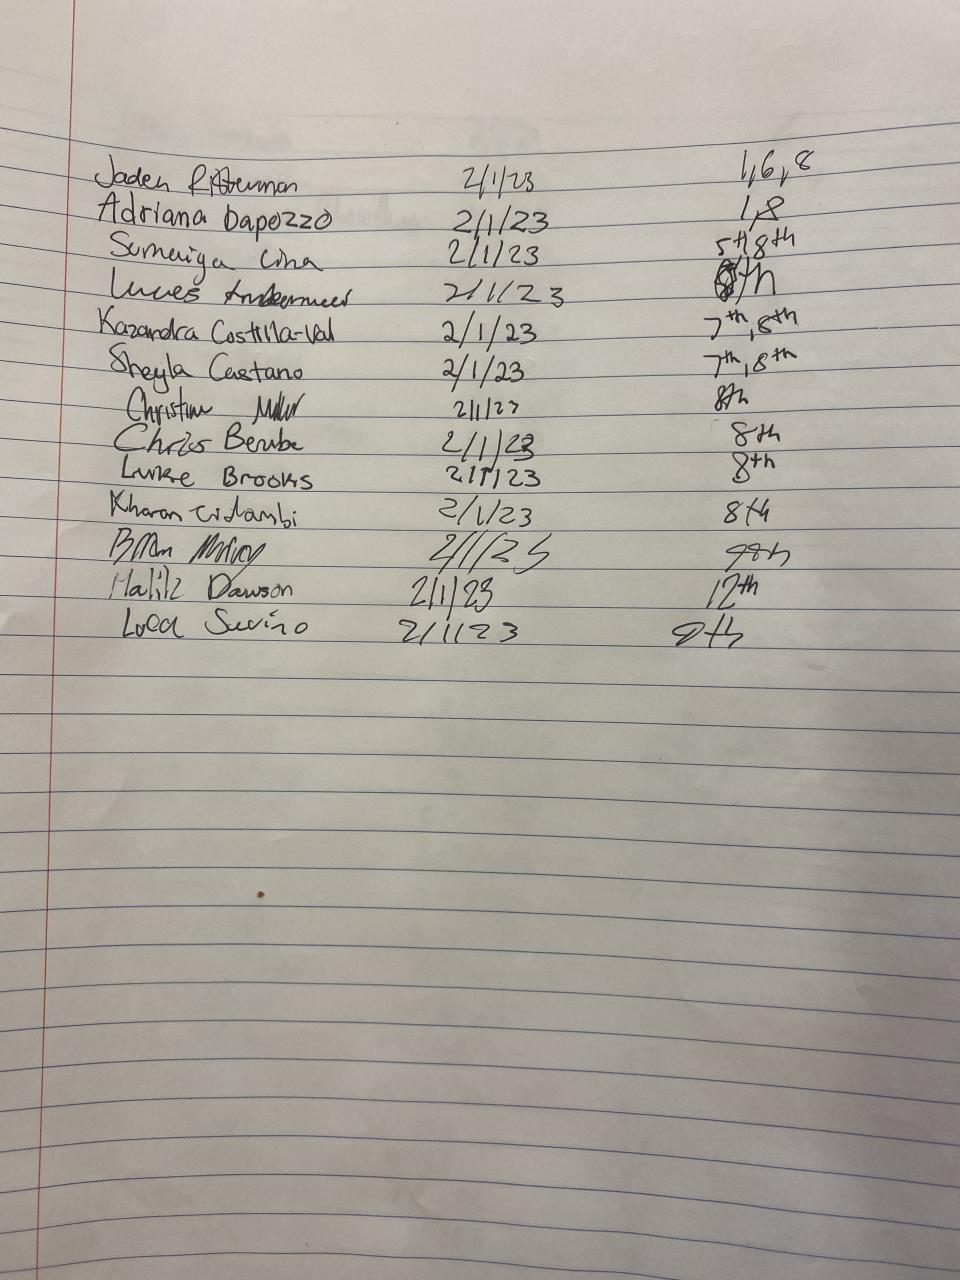 Jaden 2/1/23 1,6,8
Adriana Dapozzo 2/1/23 1,8
Sumaiya Cina 2/1/23 5th 8th
Lucas 2/1/23 8th
Kazandra Costilla-Val 2/1/23 7th, 8th
Sheyla Castano 2/1/23 7th, 8th
Christine Miller 2/1/23 8th
Chris Berube 2/1/23 8th
Luke Brooks 2/1/23 8th
Kharan Cidambi 2/1/23 8th
2/1/23
Dawson 2/1/23 12th
Luca Savino 2/1/23 8th